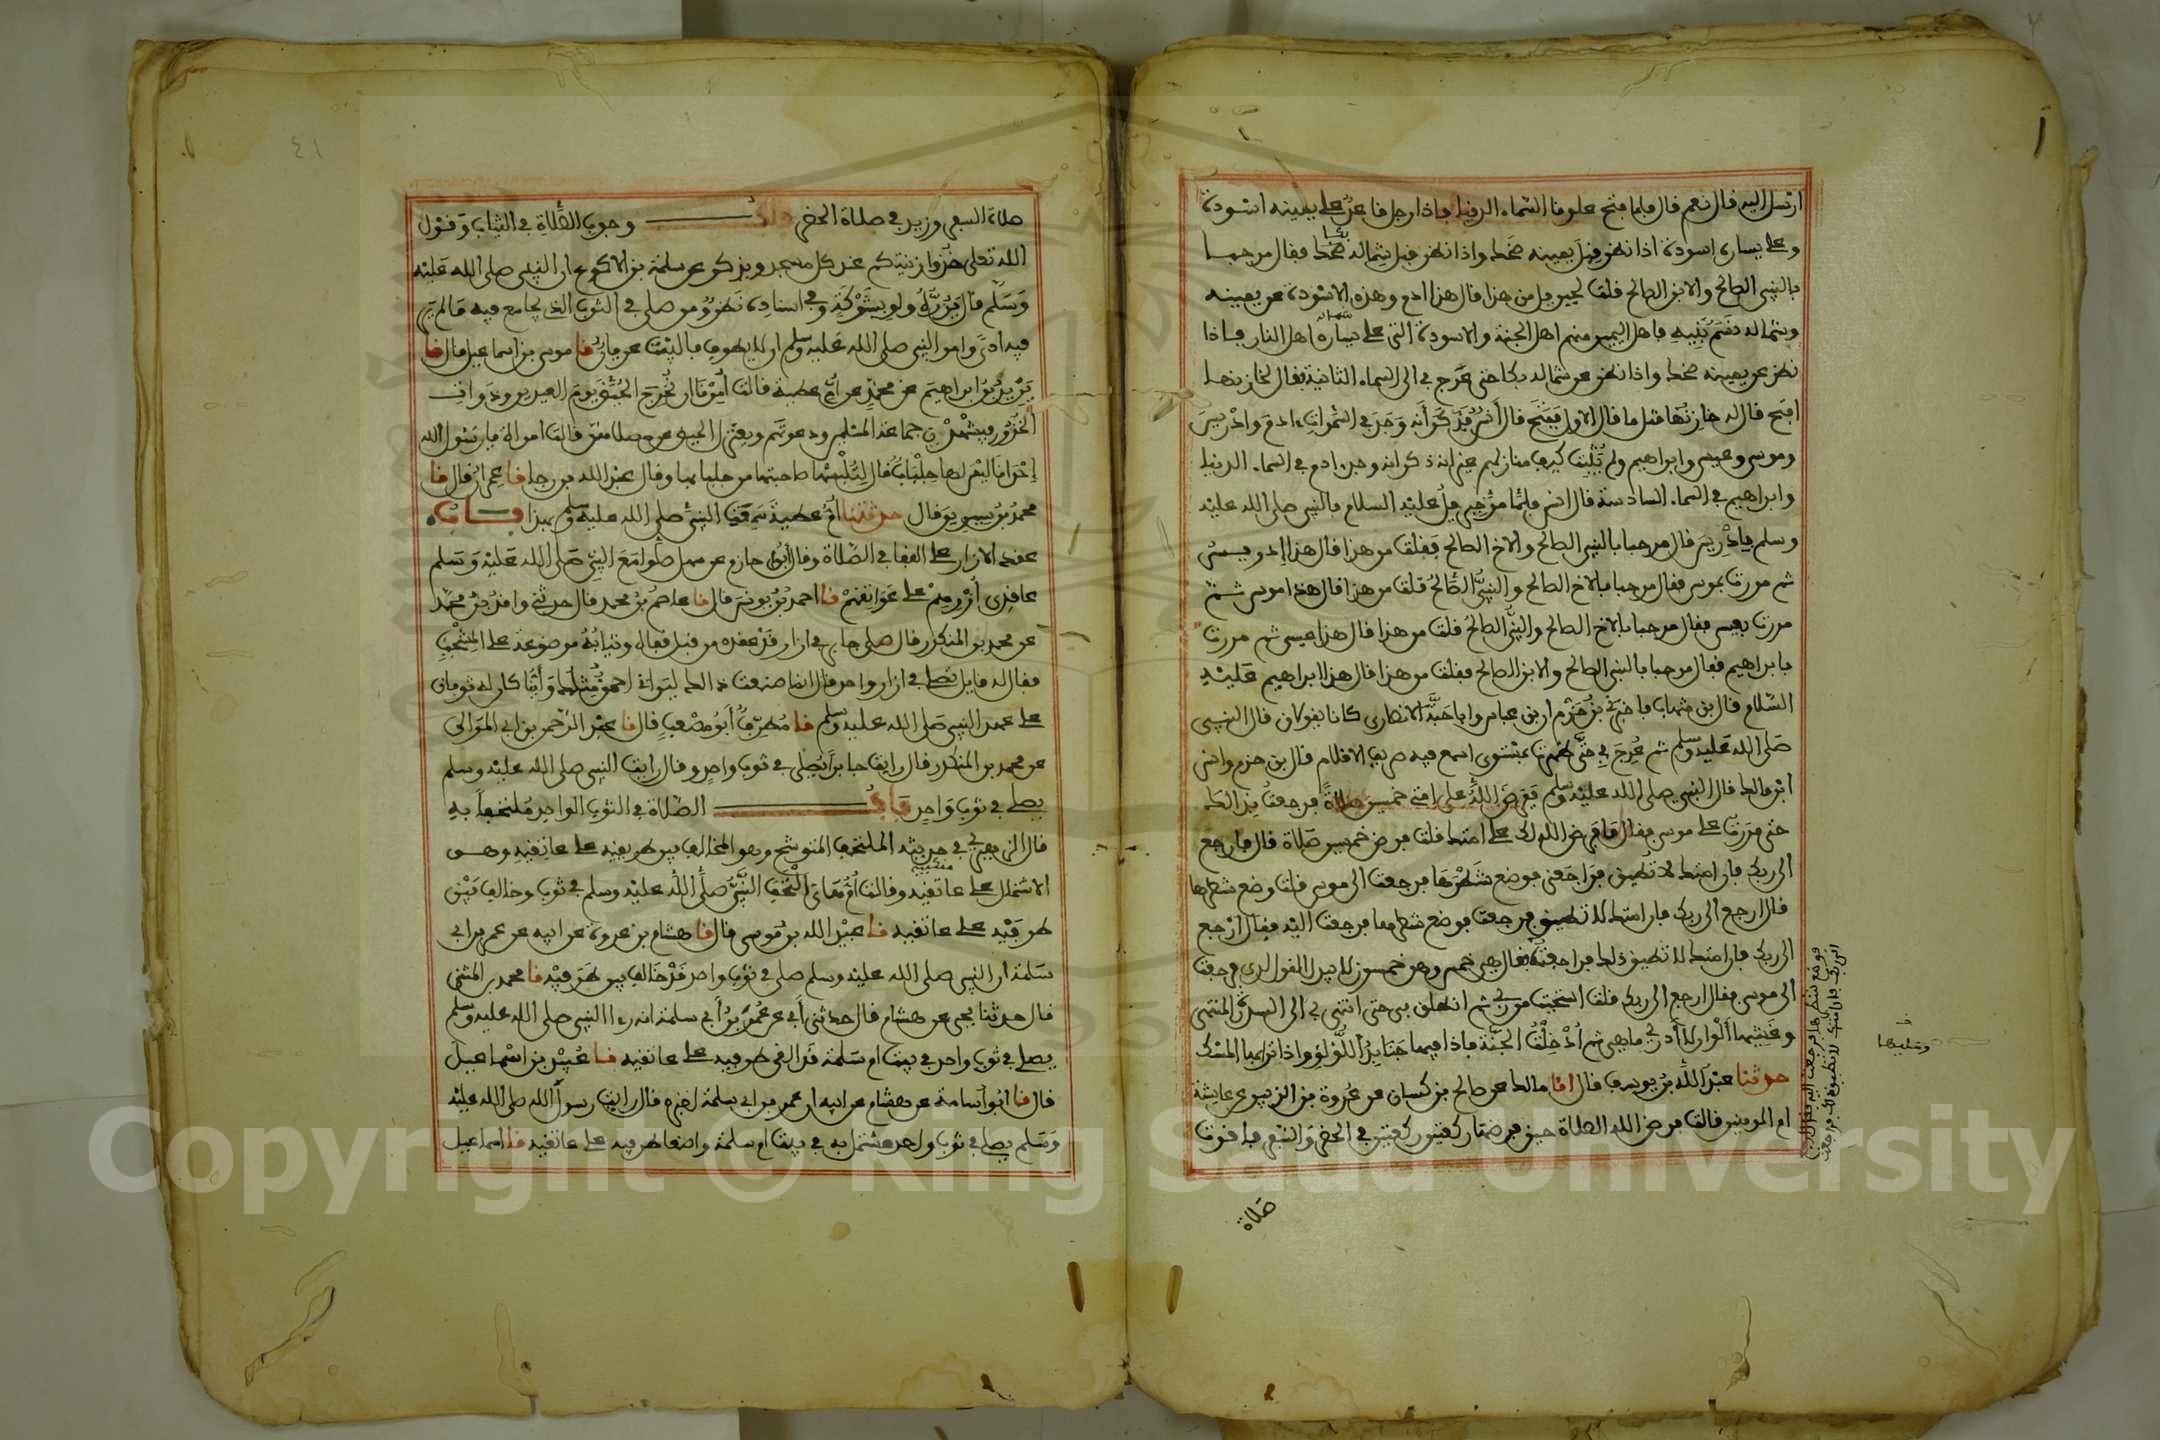 ارسل اليه قال نعم قال فلما فتح علونا السماء الدنيا فاذا رجل قاعد على يمينه اسودة
وعلى يساره اسودة اذا نظر قبل يمينه ضحك واذا نظر قبل شماله بكا فقال مرحبا
بالنبي الصالح والابن الصالح قلت لجبريل من هذا قال هذا ادم وهذه الاسودة عن يمينه
وشماله نسم بنيه فاهل اليمين منهم اهل الجنة والاسودة التي على شماله اهل النار فاذا
نظر عن يمينه ضحك واذا نظر عن شماله بكا حتى عرج بي الى السماء الثانية فقال لخازنها
افتح فقال له خازنها مثل ما قال الاول ففتح قال أنس فذكر أنه وجد في السموات ادم وادريس
وموسى وعيسى وابراهيم ولم يثبت كيف منازلهم غير انه ذكر انه وجد ادم في السماء الدنيا
وابراهيم في السماء السادسة قال انس فلما مر جبريل عليه السلام بالنبي صلى الله عليه
وسلم بإدريس قال مرحبا بالنبي الصالح والاخ الصالح فقلت من هذا قال هذا إدريس
ثم مررت بموسى فقال مرحبا بالاخ الصالح والنبي الصالح قلت من هذا قال هذا موسى ثم
مررت بعيسى فقال مرحبا بالاخ الصالح والنبي الصالح قلت من هذا قال هذا عيسى ثم مررت
بابراهيم فقال مرحبا بالنبي الصالح والابن الصالح فقلت من هذا قال هذا ابراهيم عليه
السلام قال بن شهاب فاخبرني بن حزم ان بن عباس وابا حبة الانصاري كانا يقولان قال النبي
صلى الله عليه وسلم ثم عرج بي حتى ظهرت بمستوى اسمع فيه صريف الاقلام قال بن حزم وانس
ابن مالك قال النبي صلى الله عليه وسلم ففرض الله على امتي خمسين صلاة فرجعت بذلك
حتى مررت على موسى فقال ما فرض الله لك على امتك قلت فرض خمسين صلاة قال فارجع
الى ربك فان امتك لا تطيق فراجعني فوضع شطرها فرجعت الى موسى قلت وضع شطرها
قال ارجع الى ربك فان امتك لا تطيق فرجعت فوضع شطرها فرجعت اليه فقال ارجع
الى ربك فان امتك لا تطيق ذلك فراجعته فقال هي خمس وهي خمسون لا يبدل القول لدي فرجعت
الى موسى فقال ارجع الى ربك فقلت استحييت من ربي ثم انطلق بي حتى انتهى بي الى السدرة المنتهى
وغشيها ألوان لا أدري ما هي ثم أدخلت الجنة فاذا فيها جنابذ اللؤلؤ واذا ترابها المسك
حدثنا عبد الله بن يوسف قال انا مالك عن صالح بن كيسان عن عروة بن الزبير عن عائشة
ام المومنين قالت فرض الله الصلاة حين فرضها ركعتين ركعتين في الحضر والسفر فاقرت
وغشيها
صلاة
صلاة السفر وزيد في صلاة الحضر باب وجوب الصلاة في الثياب وقول
الله تعلى خذوا زينتكم عند كل مسجد ويذكر عن سلمة بن الاكوع ان النبي صلى الله عليه
وسلم قال يزره ولو بشوكة وفي اسناده نظر ومن صلى في الثوب الذي يجامع فيه ما لم ير
فيه اذى وامر النبي صلى الله عليه وسلم ان لا يطوف بالبيت عريان نا موسى بن اسماعيل قال نا
يزيد بن ابراهيم عن محمد عن ام عطية قالت أمرنا ان نخرج الحيض يوم العيد وذوات
الخدور فيشهدن جماعة المسلمين ودعوتهم ويعتزل الحيض عن مصلاهن قالت امراة يا رسول الله
إحدانا ليس لها جلباب قال لتلبسها صاحبتها من جلبابها وقال عبد الله بن رجا نا عمران قال نا
محمد بن سيرين قال حدثتنا أم عطية سمعت النبي صلى الله عليه وسلم بهذا باب
عقد الازار على القفا في الصلاة وقال أبو حازم عن سهل صلوا مع النبي صلى الله عليه وسلم
عاقدي أزرهم على عواتقهم نا احمد بن يونس قال نا عاصم بن محمد قال حدثني واقد بن محمد
عن محمد بن المنكدر قال صلى جابر في ازار قد عقده من قبل قفاه وثيابه موضوعة على المشجب
فقال له قايل تصلي في ازار واحد قال انما صنعت ذلك ليراني احمق مثلك وأينا كان له ثوبان
على عهد النبي صلى الله عليه وسلم نا مطرف أبو مصعب قال نا عبد الرحمن بن ابي الموالي
عن محمد بن المنكدر قال رايت جابرا يصلي في ثوب واحد وقال رايت النبي صلى الله عليه وسلم
يصلي في ثوب واحد باب الصلاة في الثوب الواحد ملتحفا به
قال الزهري في حديثه الملتحف المتوشح وهو المخالف بين طرفيه على عاتقيه وهو
الاشتمال على عاتقيه وقالت أم هانئ التحف النبي صلى الله عليه وسلم في ثوب وخالف بين
طرفيه على عاتقيه نا عبد الله بن موسى قال نا هشام بن عروة عن ابيه عن عمر بن ابي
سلمة ان النبي صلى الله عليه وسلم صلى في ثوب واحد قد خالف بين طرفيه نا محمد بن المثنى
قال حدثنا يحيى عن هشام قال حدثني أبي عن عمر بن أبي سلمة انه رءا النبي صلى الله عليه وسلم
يصلي في ثوب واحد في بيت ام سلمة قد القى طرفيه على عاتقيه نا عبيد بن اسماعيل
قال نا ابو أسامة عن هشام عن ابيه ان عمر بن ابي سلمة اخبره قال رايت رسول الله صلى الله عليه
وسلم يصلي في ثوب واحد مشتملا به في بيت ام سلمة واضعا طرفيه على عاتقيه نا اسماعيل
٤١
Copyright © King Saud University